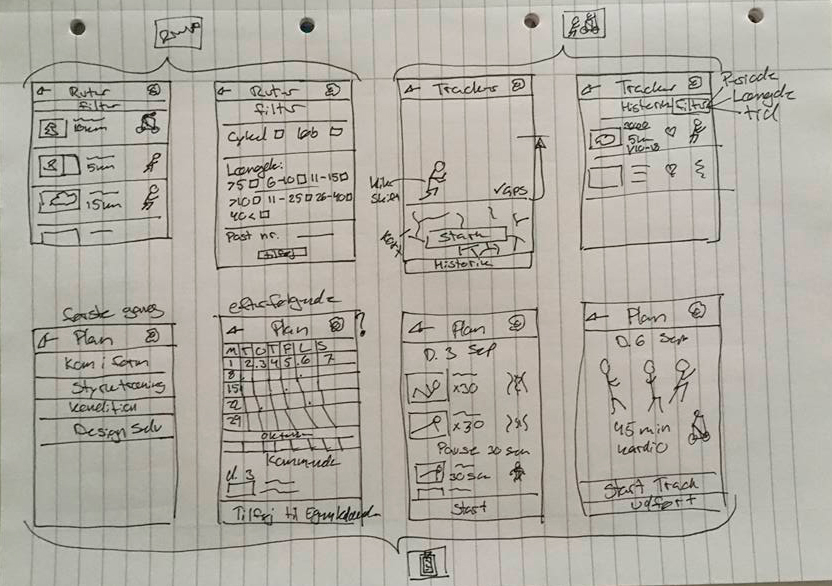 Rute
Ruter
Filter
10km
5km
15km
Ruter
Filter
Cykel løb
Længde:
>5 6-10 11-150
>10 11-25 26-40
40<
Post nr.
tilføj
Tracker
skift
GPS
Start
Historik
Tracker
Historik Filter
Periode
Længde
tid
5km
første gang
Plan
Kom i form
Styrketræning
Kondition
Design Selv
efterfølgende
Plan
?
M T O T F L S
1 2 3 4 5 6 7
8
15
22
29
Kommende
d. 3
Tilføj til
Plan
D. 3 Sep
x30
x30
Pause 30 sek
30 sek
Start
Plan
D. 6 Sep
45 min
Kardio
Start Track
udført